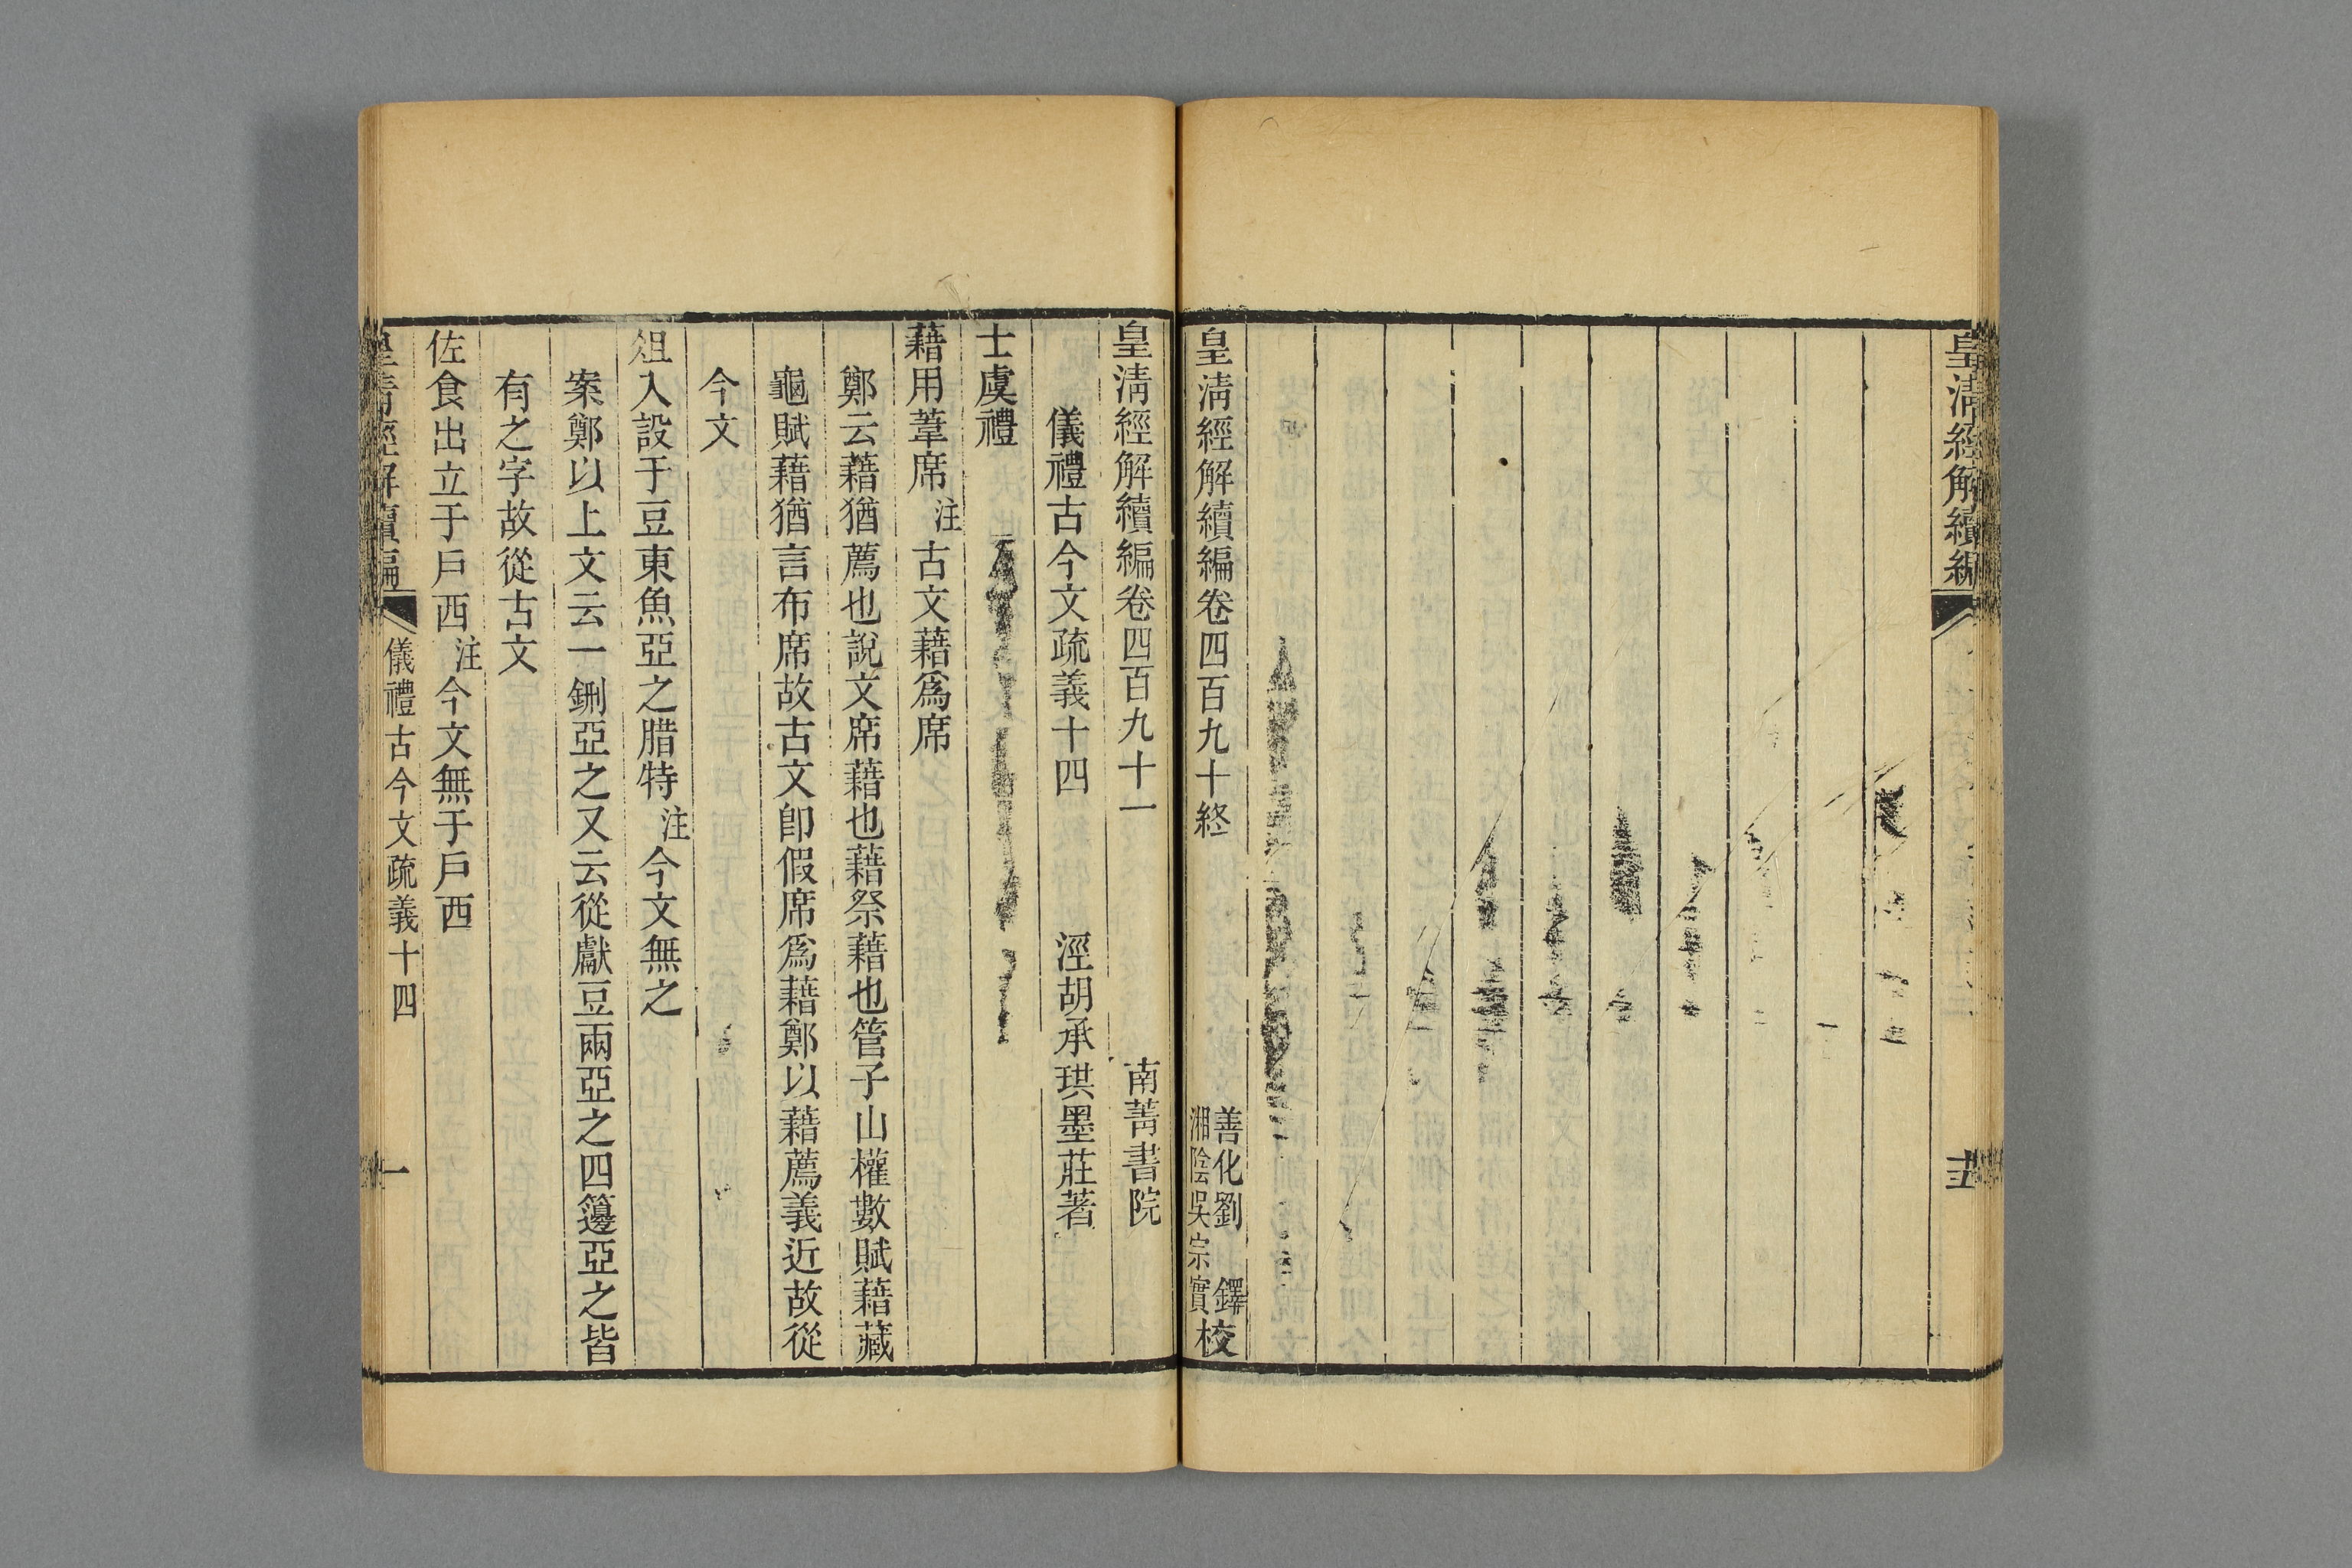 皇清經解續編
十五
皇清經解續編卷四百九十終
善化劉 鐸
湘陰吳宗實
校
皇清經解續編卷四百九十一
南菁書院
儀禮古今文疏義十四
涇胡承珙墨莊著
士虞禮
藉用葦席注古文藉爲席
鄭云藉猶薦也說文席藉也藉祭藉也管子山權數賦藉藏
龜賦藉猶言布席故古文卽假席爲藉鄭以藉薦義近故從
今文
俎入設于豆東魚亞之腊特注今文無之
案鄭以上文云一鉶亞之又云從獻豆兩亞之四籩亞之皆
有之字故從古文
佐食出立于戶西注今文無于戶西
皇清經解續編
儀禮古今文疏義十四
一